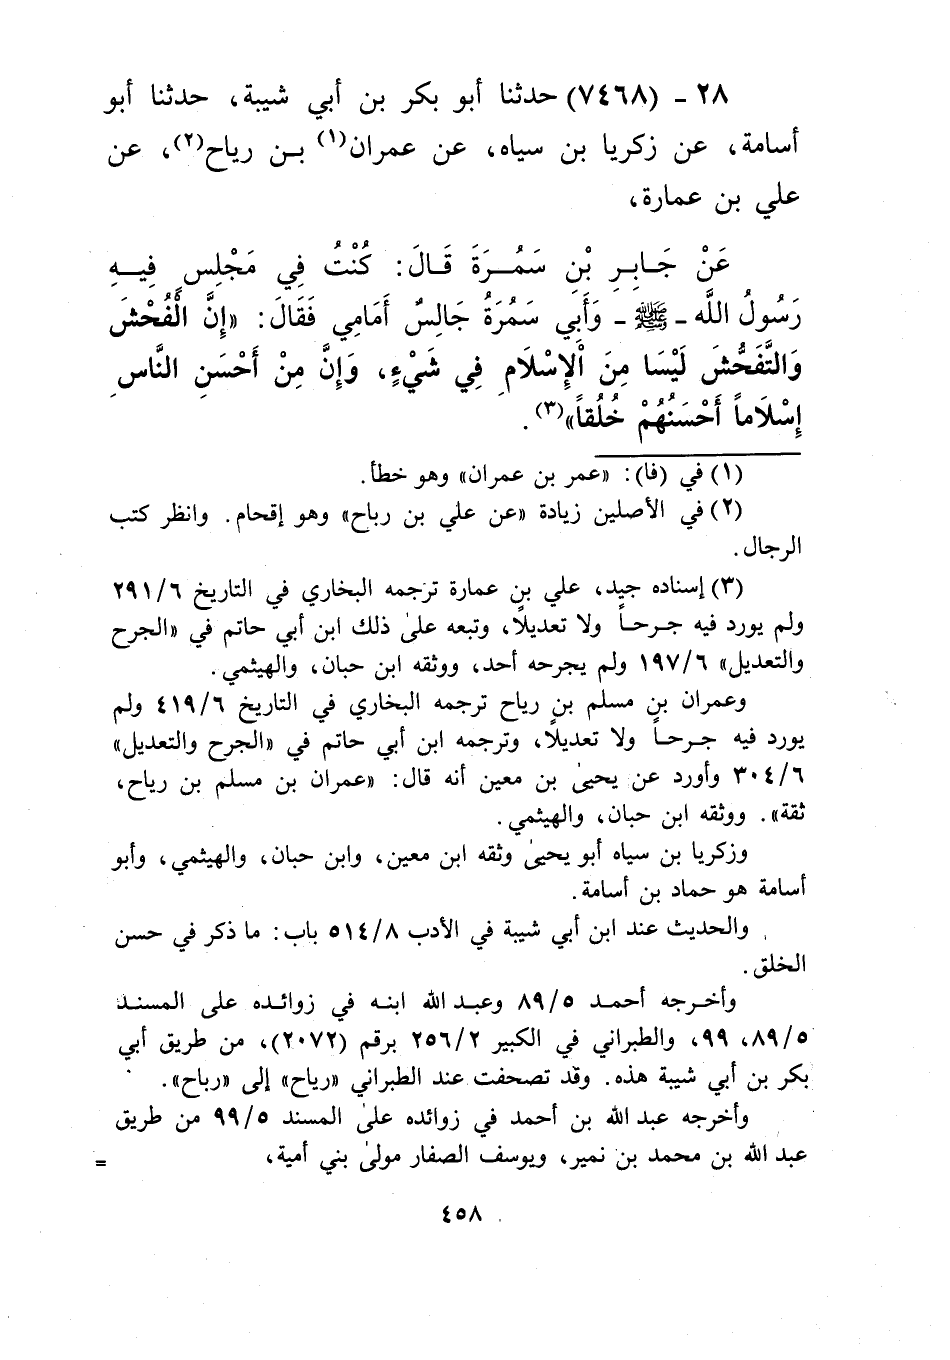 ٢٨ - (٧٤٦٨) حدثنا أبو بكر بن أبي شيبة، حدثنا أبو
أسامة، عن زكريا بن سياه، عن عمران(١) بن رياح(٢)، عن
علي بن عمارة،
عَنْ جَابِرِ بْنِ سَمُرَةَ قَالَ: كُنْتُ فِي مَجْلِسٍ فِيهِ
رَسُولُ اللَّه - ﷺ - وَأَبِي سَمُرَةُ جَالِسٌ أَمَامِي فَقَالَ: «إِنَّ الْفُحْشَ
وَالتَّفَحُّشَ لَيْسَا مِنَ الْإِسْلَامِ فِي شَيْءٍ، وَإِنَّ مِنْ أَحْسَنِ النَّاسِ
إِسْلَاماً أَحْسَنُهُمْ خُلُقاً»(٣).
(١) في (فا): «عمر بن عمران» وهو خطأ.
(٢) في الأصلين زيادة «عن علي بن رباح» وهو إقحام. وانظر كتب
الرجال.
(٣) إسناده جيد، علي بن عمارة ترجمه البخاري في التاريخ ٢٩١/٦
ولم يورد فيه جرحاً ولا تعديلاً، وتبعه علىٰ ذلك ابن أبي حاتم في «الجرح
والتعديل» ١٩٧/٦ ولم يجرحه أحد، ووثقه ابن حبان، والهيثمي.
وعمران بن مسلم بن رياح ترجمه البخاري في التاريخ ٤١٩/٦ ولم
يورد فيه جرحاً ولا تعديلاً، وترجمه ابن أبي حاتم في «الجرح والتعديل»
٣٠٤/٦ وأورد عن يحيىٰ بن معين أنه قال: «عمران بن مسلم بن رياح،
ثقة». ووثقه ابن حبان، والهيثمي.
وزكريا بن سياه أبو يحيىٰ وثقه ابن معين، وابن حبان، والهيثمي، وأبو
أسامة هو حماد بن أسامة.
والحديث عند ابن أبي شيبة في الأدب ٥١٤/٨ باب: ما ذكر في حسن
الخلق.
وأخرجه أحمد ٨٩/٥ وعبد الله ابنه في زوائده على المسند
٨٩/٥، ٩٩، والطبراني في الكبير ٢٥٦/٢ برقم (٢٠٧٢)، من طريق أبي
بكر بن أبي شيبة هذه. وقد تصحفت عند الطبراني «رياح» إلى «رباح».
وأخرجه عبد الله بن أحمد في زوائده علىٰ المسند ٩٩/٥ من طريق
عبد الله بن محمد بن نمير، ويوسف الصفار مولىٰ بني أمية، =
٤٥٨